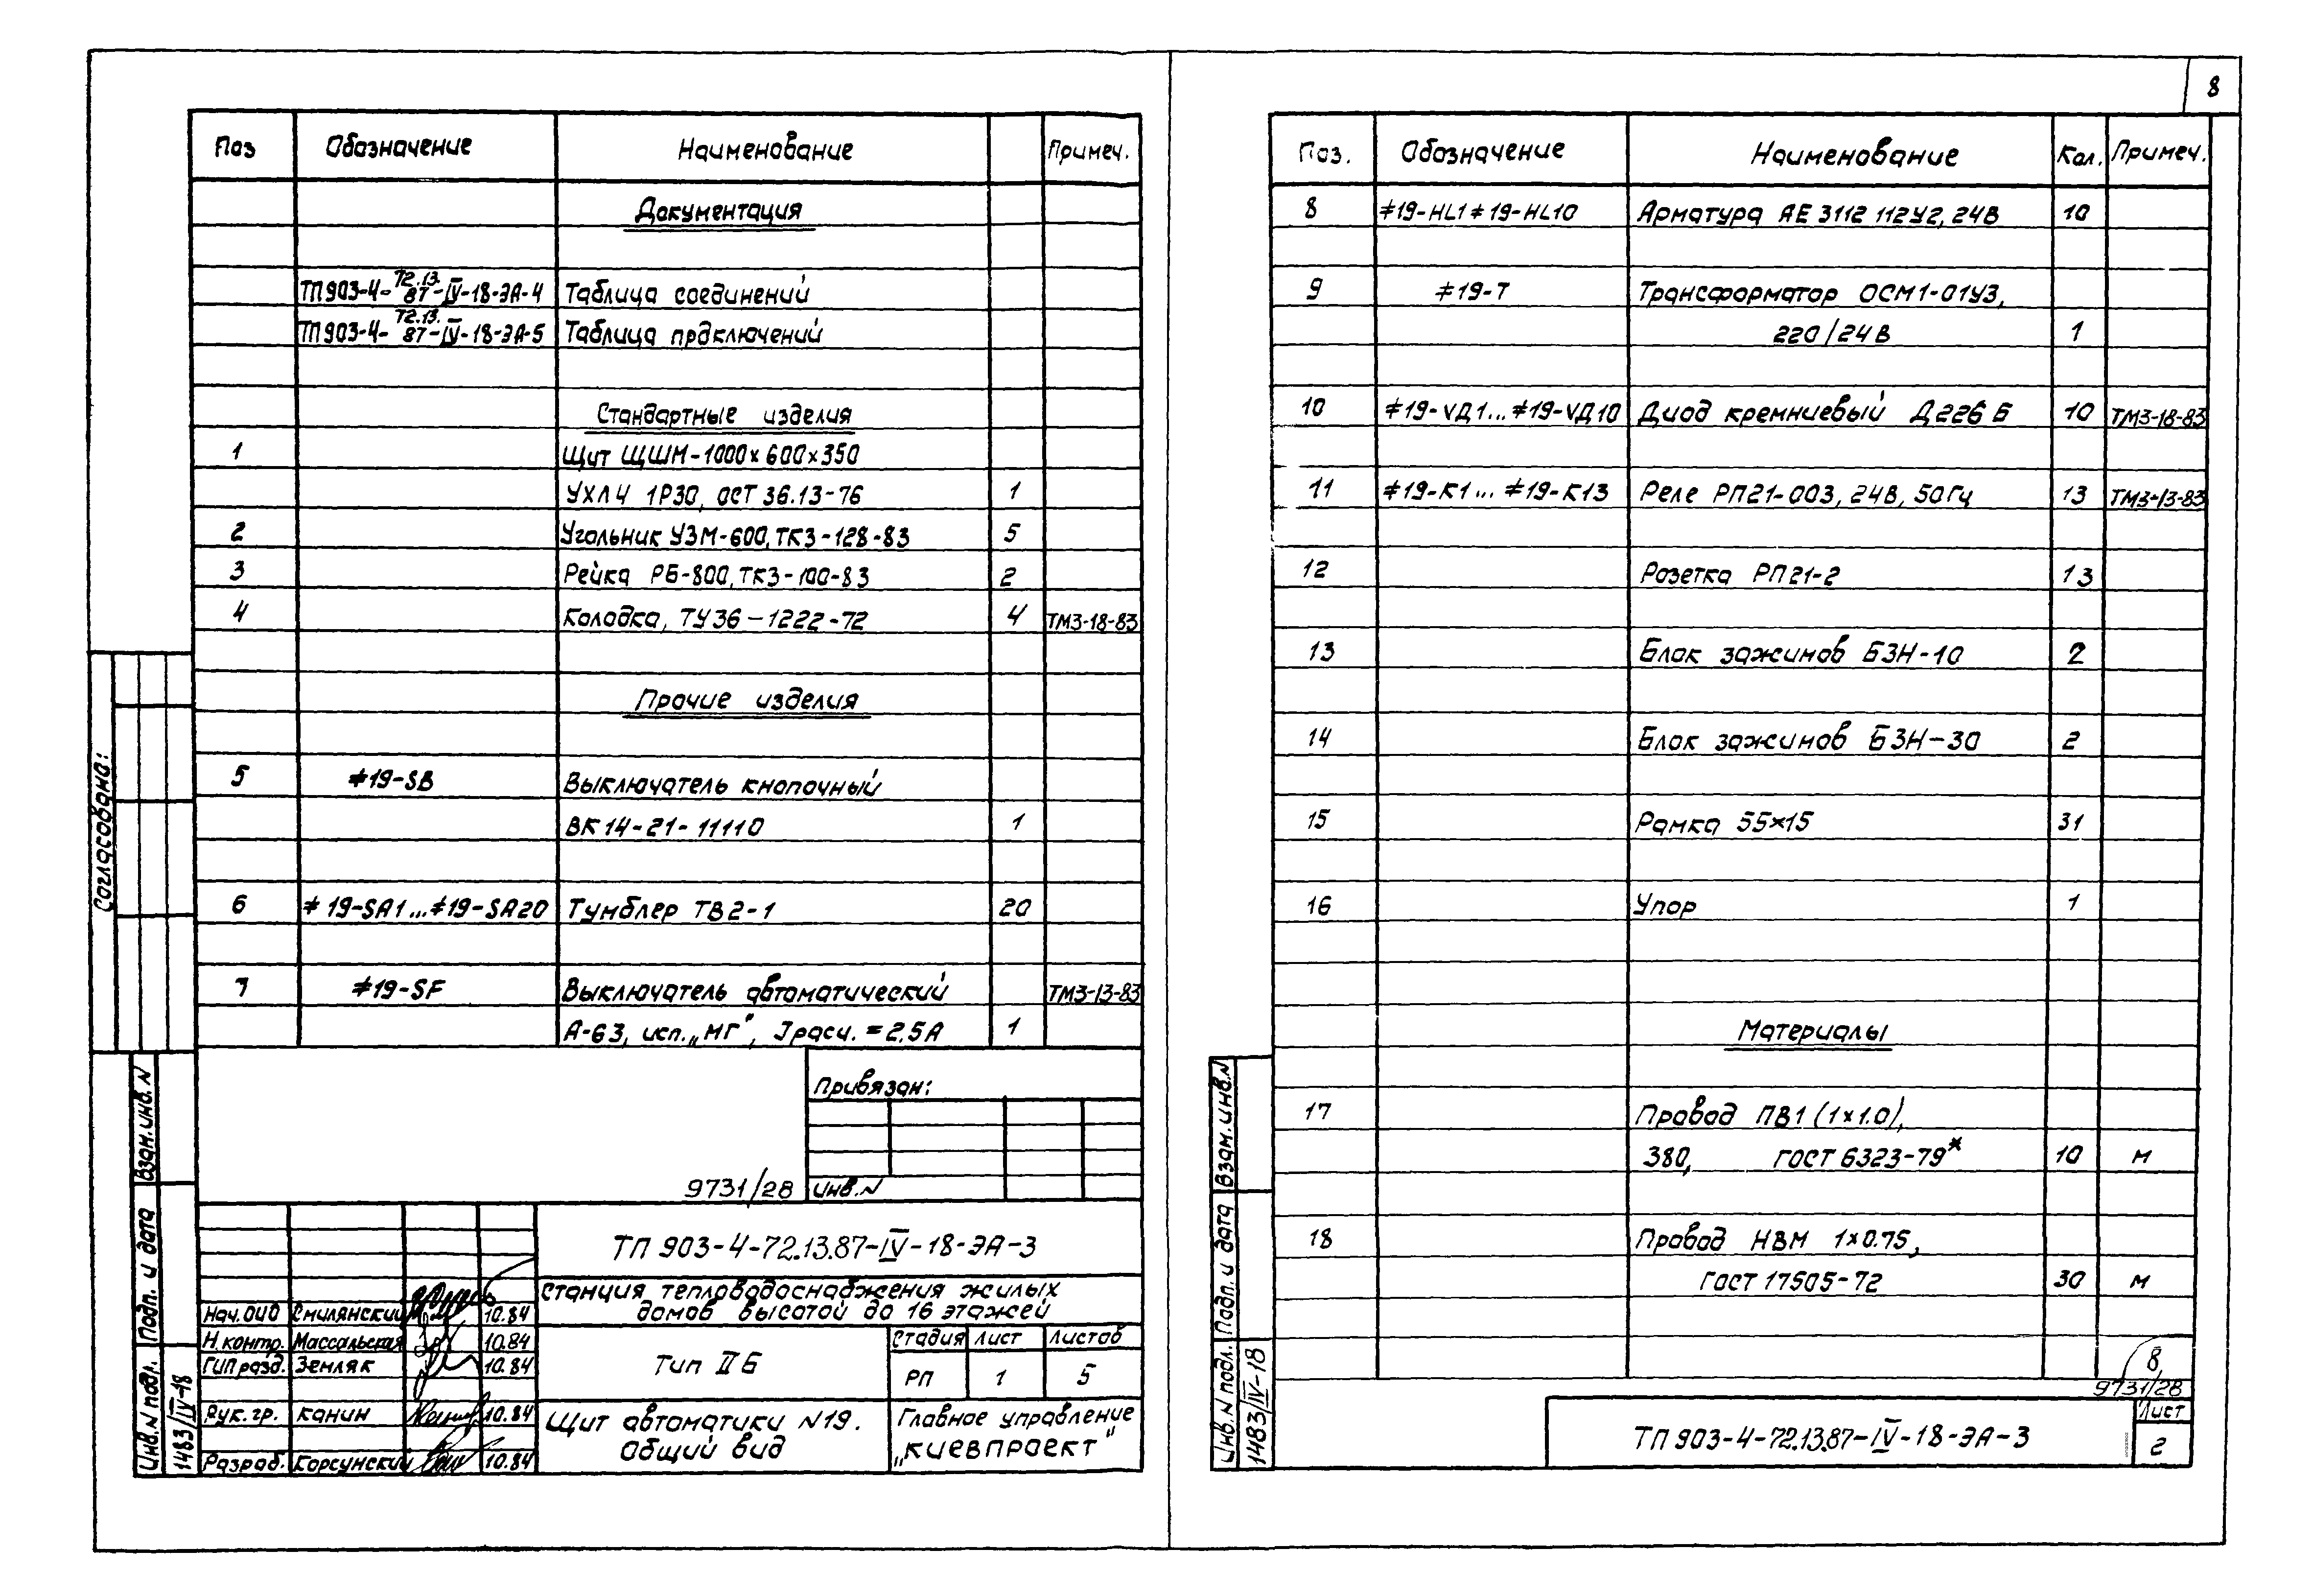 8
Поз Обозначение Наименование Примеч.
Документация
ТП903-4-72.13.87-IV-18-ЭА-4 Таблица соединений
ТП903-4-72.13.87-IV-18-ЭА-5 Таблица подключений
Стандартные изделия
1 Щит ЩШМ-1000×600×350
УХЛ4 1Р30, ОСТ 36.13-76 1
2 Угольник УЗМ-600, ТК3-128-83 5
3 Рейка РБ-800, ТК3-100-83 2
4 Колодка, ТУ36-1222-72 4 ТМ3-18-83
Прочие изделия
5 ≠19-SB Выключатель кнопочный
ВК14-21-11110 1
6 ≠19-SA1...≠19-SA20 Тумблер ТВ2-1 20
7 ≠19-SF Выключатель автоматический ТМ3-13-83
А-63, исп. „МГ", Iрасц. = 2,5А 1
Привязан:
9731/28 Инв. N
ТП 903-4-72.13.87-IV-18-ЭА-3
Станция тепловодоснабжения жилых
домов высотой до 16 этажей
Нач. ОИО Смилянский 10.84
Н. контр. Массальская 10.84
ГИП разд. Земляк 10.84
Рук. гр. Канин 10.84
Разраб. Корсунский 10.84
Тип II Б
Стадия Лист Листов
РП 1 5
Щит автоматики N19.
Общий вид
Главное управление
„Киевпроект"
Согласовано:
Взам. инв. N
Подп. и дата
Инв. N подл.
1483/IV-18
Поз. Обозначение Наименование Кол. Примеч.
8 ≠19-HL1≠19-HL10 Арматура АЕ 3112 112У2, 24В 10
9 ≠19-Т Трансформатор ОСМ1-01У3,
220/24В 1
10 ≠19-VД1...≠19-VД10 Диод кремниевый Д226Б 10 ТМ3-18-83
11 ≠19-К1... ≠19-К13 Реле РП21-003, 24В, 50Гц 13 ТМ3-13-83
12 Розетка РП21-2 13
13 Блок зажимов БЗН-10 2
14 Блок зажимов БЗН-30 2
15 Рамка 55×15 31
16 Упор 1
Материалы
17 Провод ПВ1 (1×1.0),
380, ГОСТ 6323-79* 10 м
18 Провод НВМ 1×0.75,
ГОСТ 17505-72 30 м
8
9731/28
ТП 903-4-72.13.87-IV-18-ЭА-3
Лист
2
Взам. инв. N
Подп. и дата
Инв. N подл.
1483/IV-18